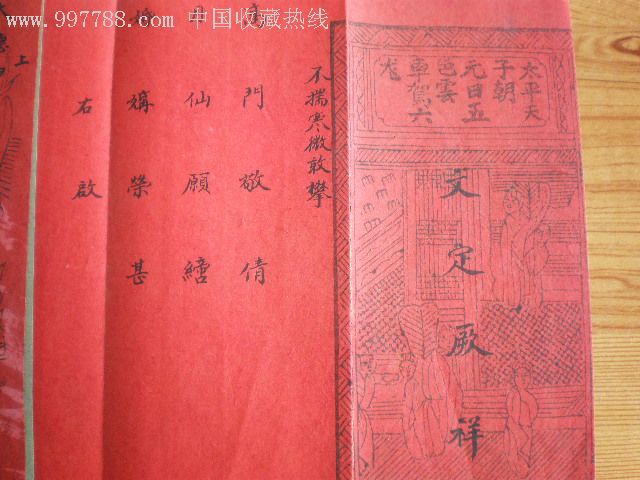 www.997788.com 中国收藏热线
太平天
子朝
元日五
色雲
車駕六
文定厥祥
不揣寒微敢攀
門敬倩
仙願
榮甚
右啟
上